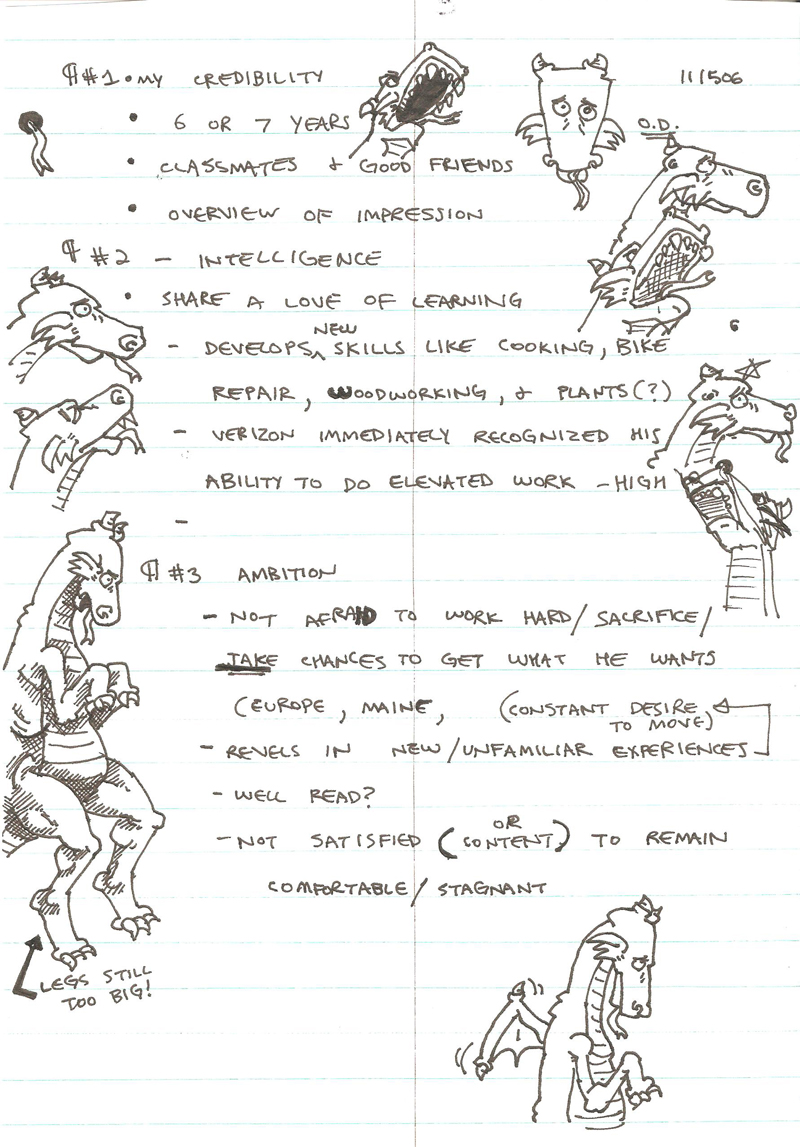 ¶#1 • MY CREDIBILITY
11/506
O.D.
• 6 OR 7 YEARS
• CLASSMATES & GOOD FRIENDS
• OVERVIEW OF IMPRESSION
¶ #2 - INTELLIGENCE
• SHARE A LOVE OF LEARNING
6
- DEVELOPS NEW SKILLS LIKE COOKING, BIKE
REPAIR, WOODWORKING, & PLANTS(?)
- VERIZON IMMEDIATELY RECOGNIZED HIS
ABILITY TO DO ELEVATED WORK - HIGH
-
¶ #3 AMBITION
- NOT AFRAID TO WORK HARD/ SACRIFICE/
TAKE CHANCES TO GET WHAT HE WANTS
(EUROPE, MAINE, (CONSTANT DESIRE
TO MOVE)
- REVELS IN NEW/UNFAMILIAR EXPERIENCES
- WELL READ?
- NOT SATISFIED (OR CONTENT) TO REMAIN
COMFORTABLE/ STAGNANT
LEGS STILL
TOO BIG!